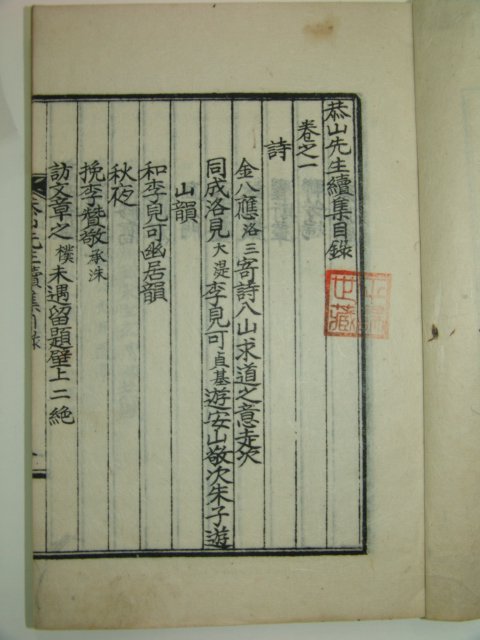 恭山先生續集目錄
卷之一
詩
金八應洛三寄詩八山求道之意走次
同成洛見大湜李見可貞基遊安山敬次朱子遊
山韻
和李見可幽居韻
秋夜
挽李聲敬承洙
訪文章之樸未遇留題壁上二絶
恭山先生續集目錄